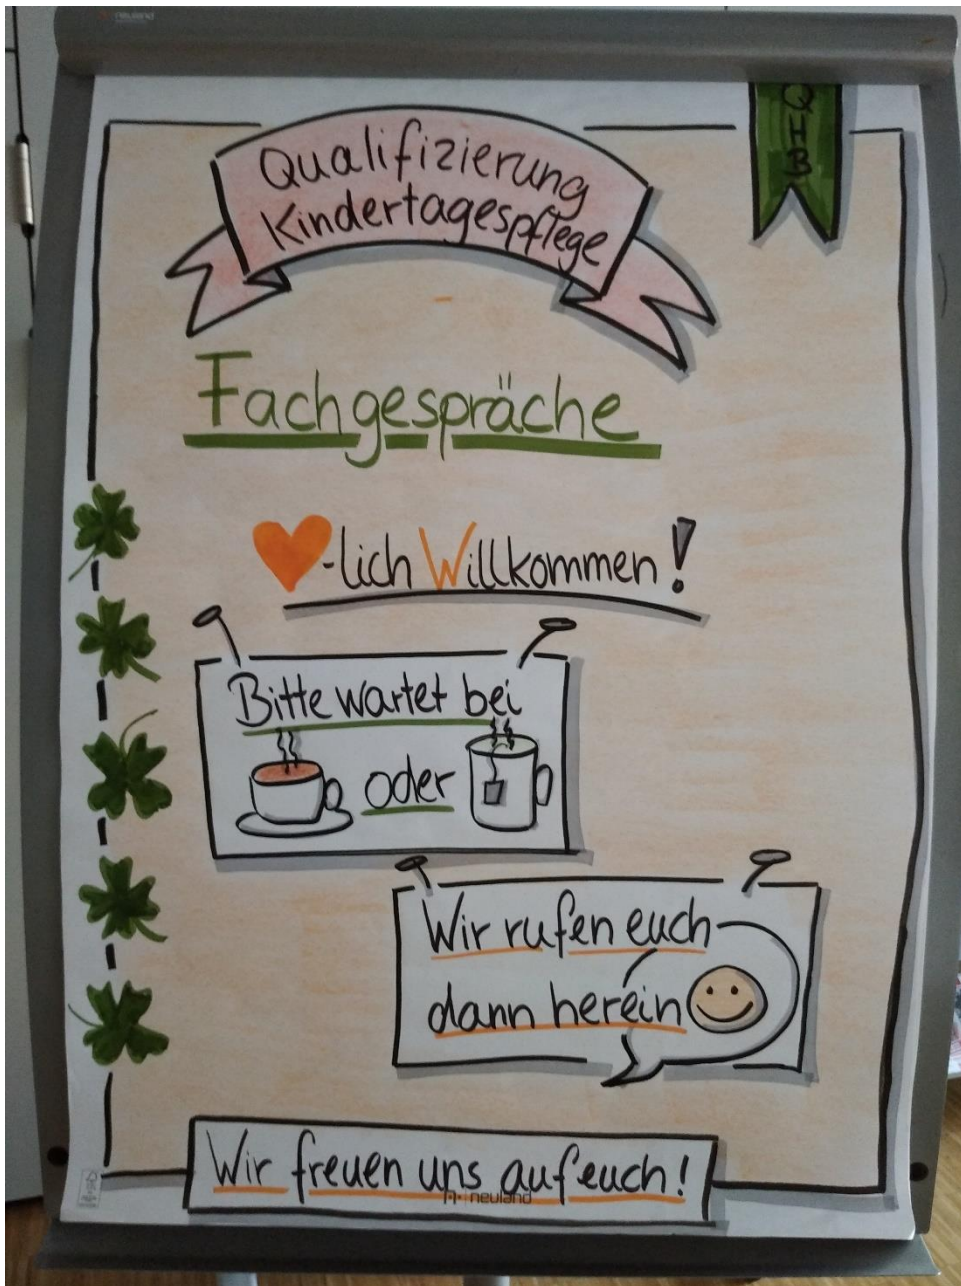 neuland
QHB
Qualifizierung
Kindertagespflege
Fachgespräche
-lich Willkommen!
Bitte wartet bei
oder
Wir rufen euch
dann herein
Wir freuen uns auf euch!
neuland